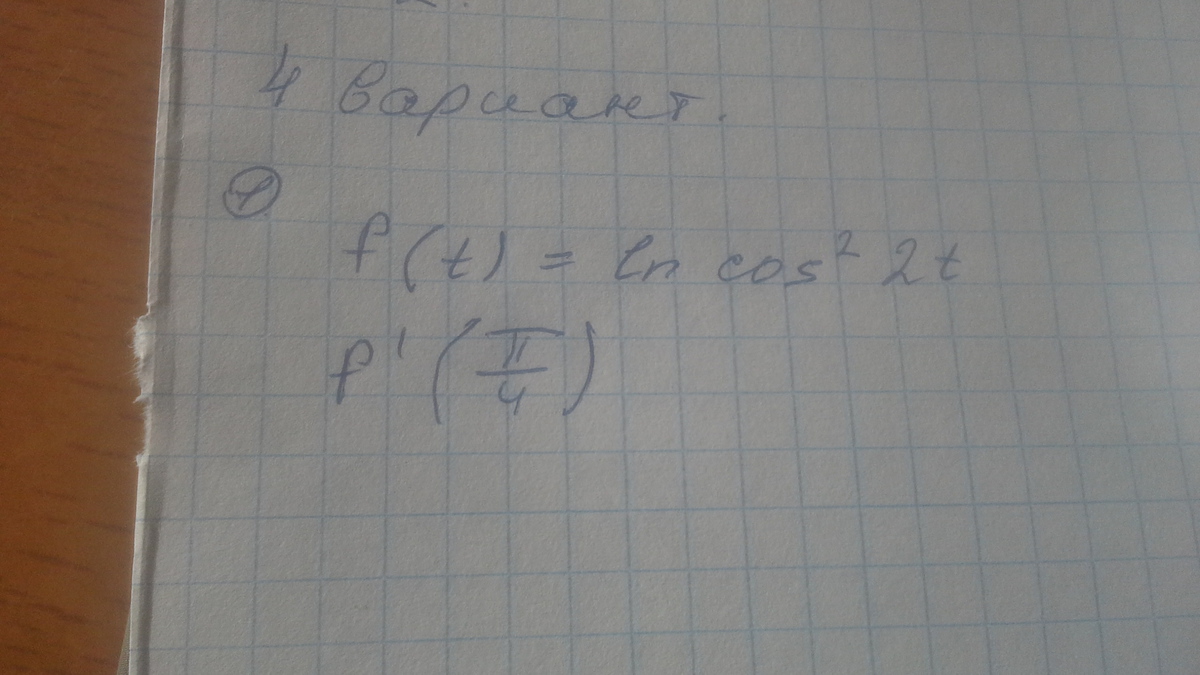 4 вариант.
①
f(t) = ln cos² 2t
f'(π/4)